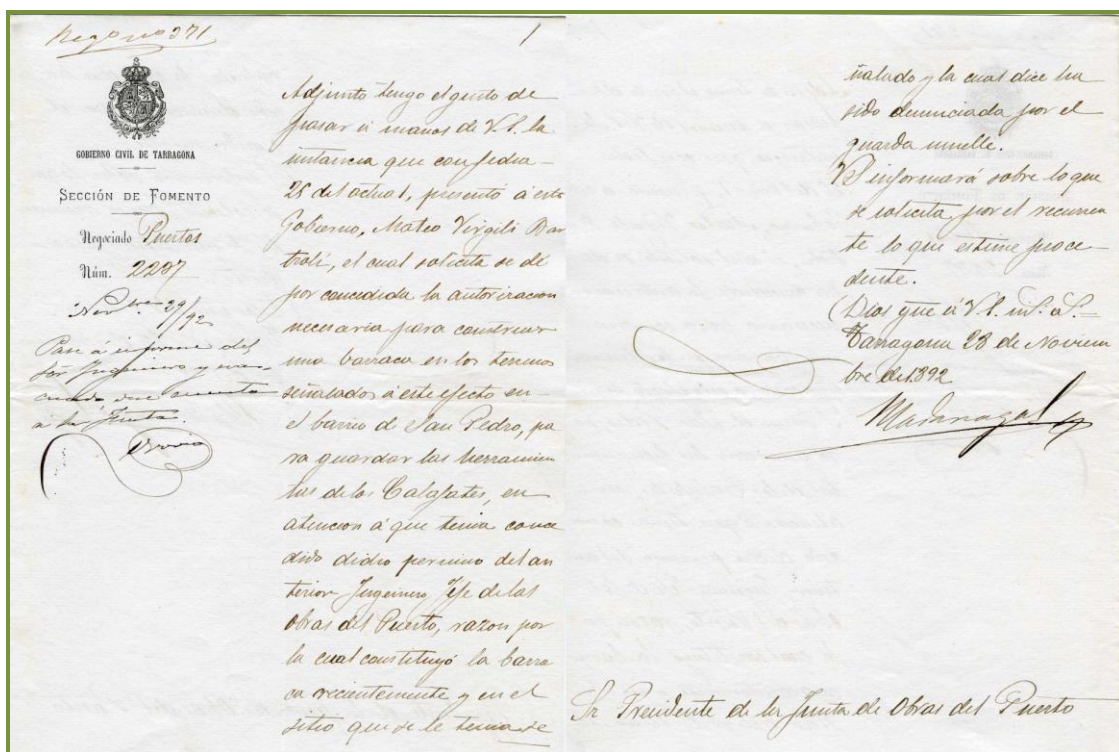 Negº nº 371
1
GOBIERNO CIVIL DE TARRAGONA
SECCIÓN DE FOMENTO
Negociado Puertos
Núm. 2207
Nov.bre 29/92
Pase á informe del
Sr. Ingeniero y
dese cuenta
á la Junta.
Adjunto tengo el gusto de
pasar á manos de V.S. la
instancia que con fecha
25 del actual, presentó á este
Gobierno, Mateo Virgili Bar
trolí, el cual solicita se dé
por concedida la autorizacion
necesaria para construir
una barraca en los terrenos
señalados á este efecto en
el barrio de San Pedro, pa
ra guardar las herramien
tas de los Calafates, en
atencion á que tenia conce
dido dicho permiso del an
terior Ingeniero Jefe de las
Obras del Puerto, razon por
la cual constituyó la barra
ca recientemente y en el
sitio que se le tenia se
ñalado y la cual dice ha
sido denunciada por el
guarda muelle.
VS informará sobre lo que
se solicita por el recurren
te lo que estime proce
dente.
Dios gue á V.S. m.s a.s
Tarragona 28 de Noviem
bre de 1892
Sr Presidente de la Junta de Obras del Puerto